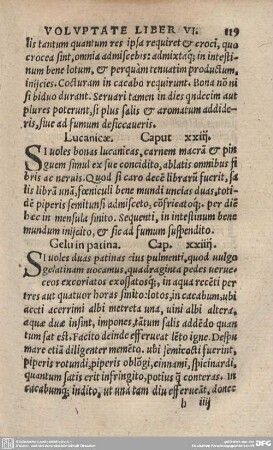 VOLVPTATE LIBER VI. 119
lis tantum quantum res ipsa requiret & croci, quo
crocea sint, omnia admiscebis: admixtaq́; in intesti
num bene lotum, & perquàm tenuatim productum,
inijcies. Cocturam in cacabo requirunt. Bona nō ni
si biduo durant. Seruari tamen in dies qndecim aut
plures poterunt, si plus salis & aromatum addide-
ris, siue ad fumum desiccaueris.
Lucanicæ. Caput xxiij.
SI uoles bonas lucanicas, carnem macrā & pin
guem simul ex sue concidito, ablatis omnibus fi
bris ac neruis. Quod si caro decē librarū fuerit, sa
lis librā unā, fœniculi bene mundi uncias duas, toti-
dē piperis semitunsi admisceto, cōfricatoq́;. per diē
hæc in mensula sinito. Sequenti, in intestinum bene
mundum inijcito, & sic ad fumum suspendito.
Gelu in patina. Cap. xxiiij.
SI uoles duas patinas eius pulmenti, quod uulgo
gelatinam uocamus, quadraginta pedes verue
ceos excoriatos exossatosq́;, in aqua recēti per
tres aut quatuor horas sinito: lotos, in cacabum, ubi
aceti acerrimi albi metreta una, uini albi altera,
aquæ duæ insint, impones, tātum salis addēdo quan
tum sat est. Facito deinde efferueat lēto igne. Despu
mare etiā diligenter memēto. ubi semicocti fuerint,
piperis rotundi, piperis oblōgi, cinnami, spicinardi,
quantum satis erit infringito, potius q̄ conteras. in
cacabumq́; indito, ut unà tam diu efferueāt, donec
h iiij